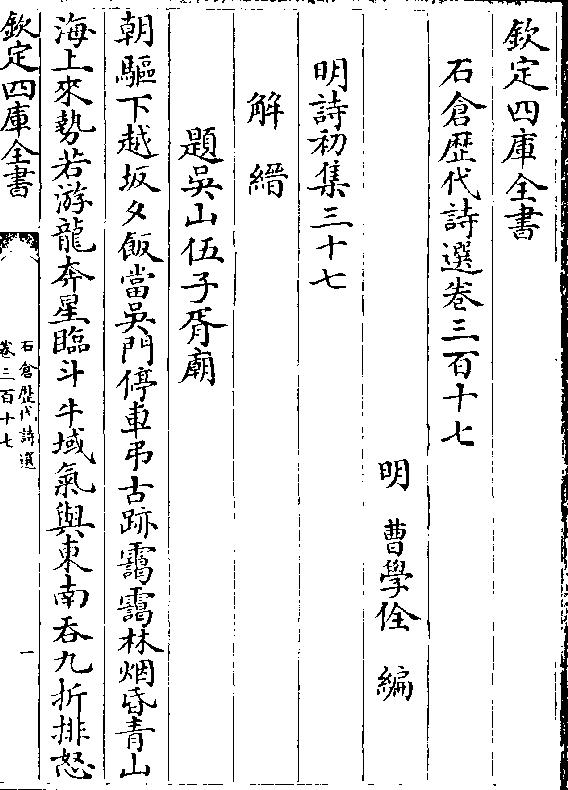 欽定四庫全書
石倉歴代詩選卷三百十七
明 曹學佺 編
明詩初集三十七
解縉
題吳山伍子胥廟
朝驅下越坂夕飯當吳門停車弔古跡靄靄林烟昏青山
海上來勢若游龍奔星臨斗牛域氣與東南吞九折排怒
欽定四庫全書
石倉歴代詩選
卷三百十七
一